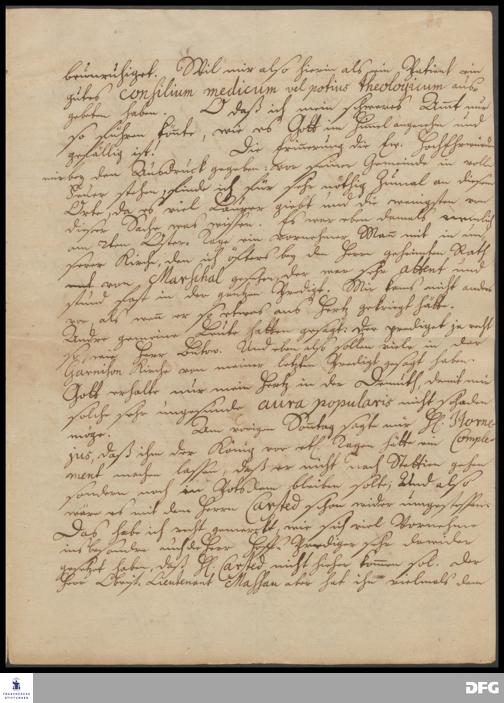 beunruhiget. Will mir also hierin als ein Patient ein
gutes consilium medicum vel potius theologicum aus-
gebeten haben. O daß ich mein schweres Amt nur
so führen könte, wie es Gott im Himel angenehm und
gefällig ist. Die Erinnerung die Ew. Hochehrwürd.
mir bey dem Ausdruck gegeben: vor seiner Gemeinde in vollen
Feuer stehen, finde ich für sehr nöthig zumal an diesem
Orte, da es viel giebt und die wenigsten von
dieser Sache was wissen. Es war eben damals neml.
am 2ten Oster-Tage ein vornehmer Mann mit in un-
serer Kirche, den ich öfters bey dem Herrn geheimten Rath
von Marschal gesehen, der war sehr attent und
stund fast in der gantzen Predigt. Mir kans nicht anders
vor als wenn er so etwas ans Hertz gekriegt hätte.
Andre gemeine Leute hatten gesagt: der prediget ja recht
so, wie Herr Bütow. Und eben also sollen viele in der
Garnison Kirche von meiner letzten Predigt gesagt haben.
Gott erhalte nur mein Hertz in der Demuth, damit mir
solche sehr ungesunde aura popularis nicht schaden
möge. Am vorigen Sonntag sagte mir H. Horne-
jus, daß ihm der König vor etl. Tagen hätte ein Comple-
ment machen lassen, daß er nicht nach Stettin gehen
sondern noch in Potsdam bleiben solte, Und also
wäre es mit dem Herrn Carsted schon wider umgestossen.
Das habe ich recht gemerckt, wie sich viel Vornehme
insbesondre auch die Herr Hoff-Prediger sehr darwider
gesetzt haben, daß H. Carsted nicht hieher kommen sol. Der
Herr Obrist-Lieutenant Massau aber hat ihn vielmals dem
FRANCKESCHE
STIFTUNGEN
DFG